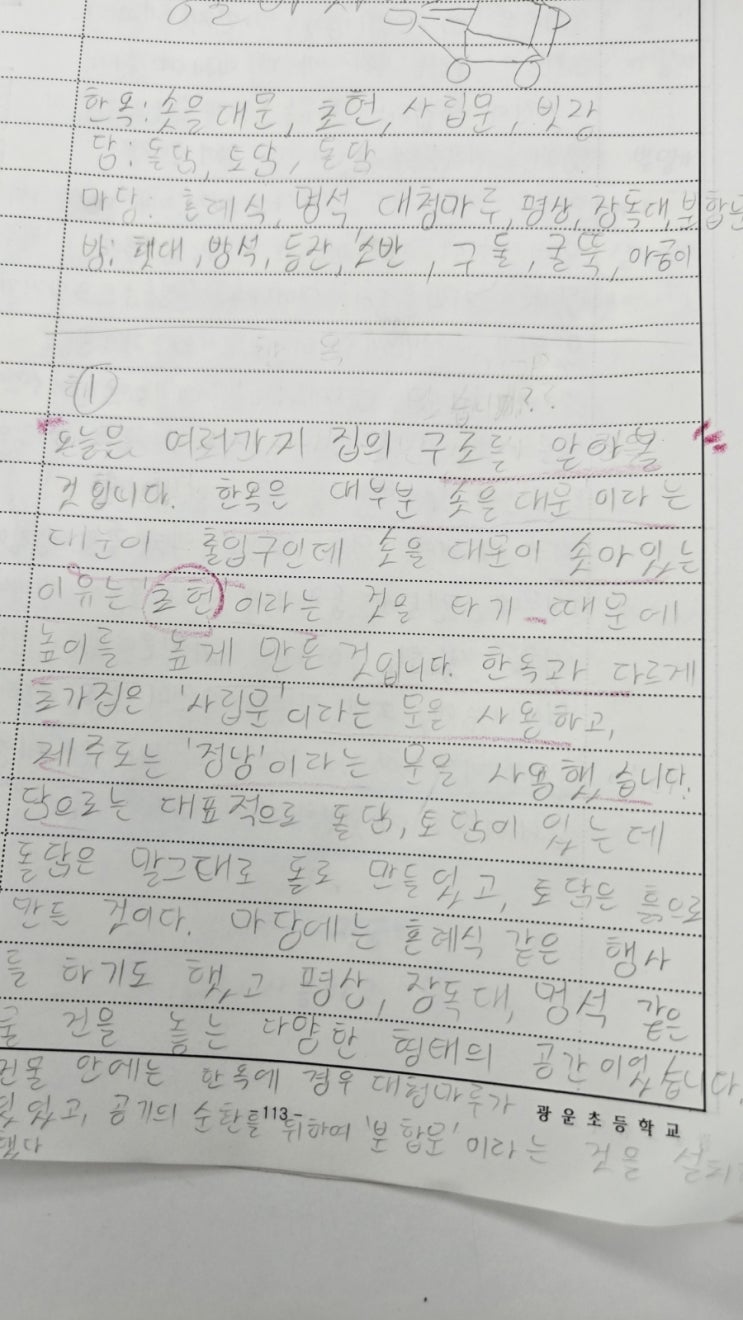 한옥: 솟을대문, 초헌, 사립문, 빗장
담: 돌담, 토담, 돌담
마당: 혼례식, 멍석, 대청마루, 평상, 장독대, 분합문
방: 횃대, 방석, 등잔, 소반, 구들, 굴뚝, 아궁이
①
오늘은 여러가지 집의 구조를 알아볼
것입니다. 한옥은 대부분 솟을 대문 이라는
대문이 출입구인데 솟을 대문이 솟아있는
이유는 '초헌'이라는 것을 타기 때문에
높이를 높게 만든 것입니다. 한옥과 다르게
초가집은 '사립문'이라는 문을 사용하고,
제주도는 '정낭'이라는 문을 사용했습니다.
담으로는 대표적으로 돌담, 토담이 있는데
돌담은 말그대로 돌로 만들었고, 토담은 흙으로
만든 것이다. 마당에는 혼례식 같은 행사
를 하기도 했고 평상, 장독대, 멍석 같은
물건을 놓는 다양한 형태의 공간이었습니다.
건물 안에는 한옥에 경우 대청마루가
있었고, 공기의 순환을 위하여 '분합문' 이라는 것을
했다
- 113 -
광운초등학교